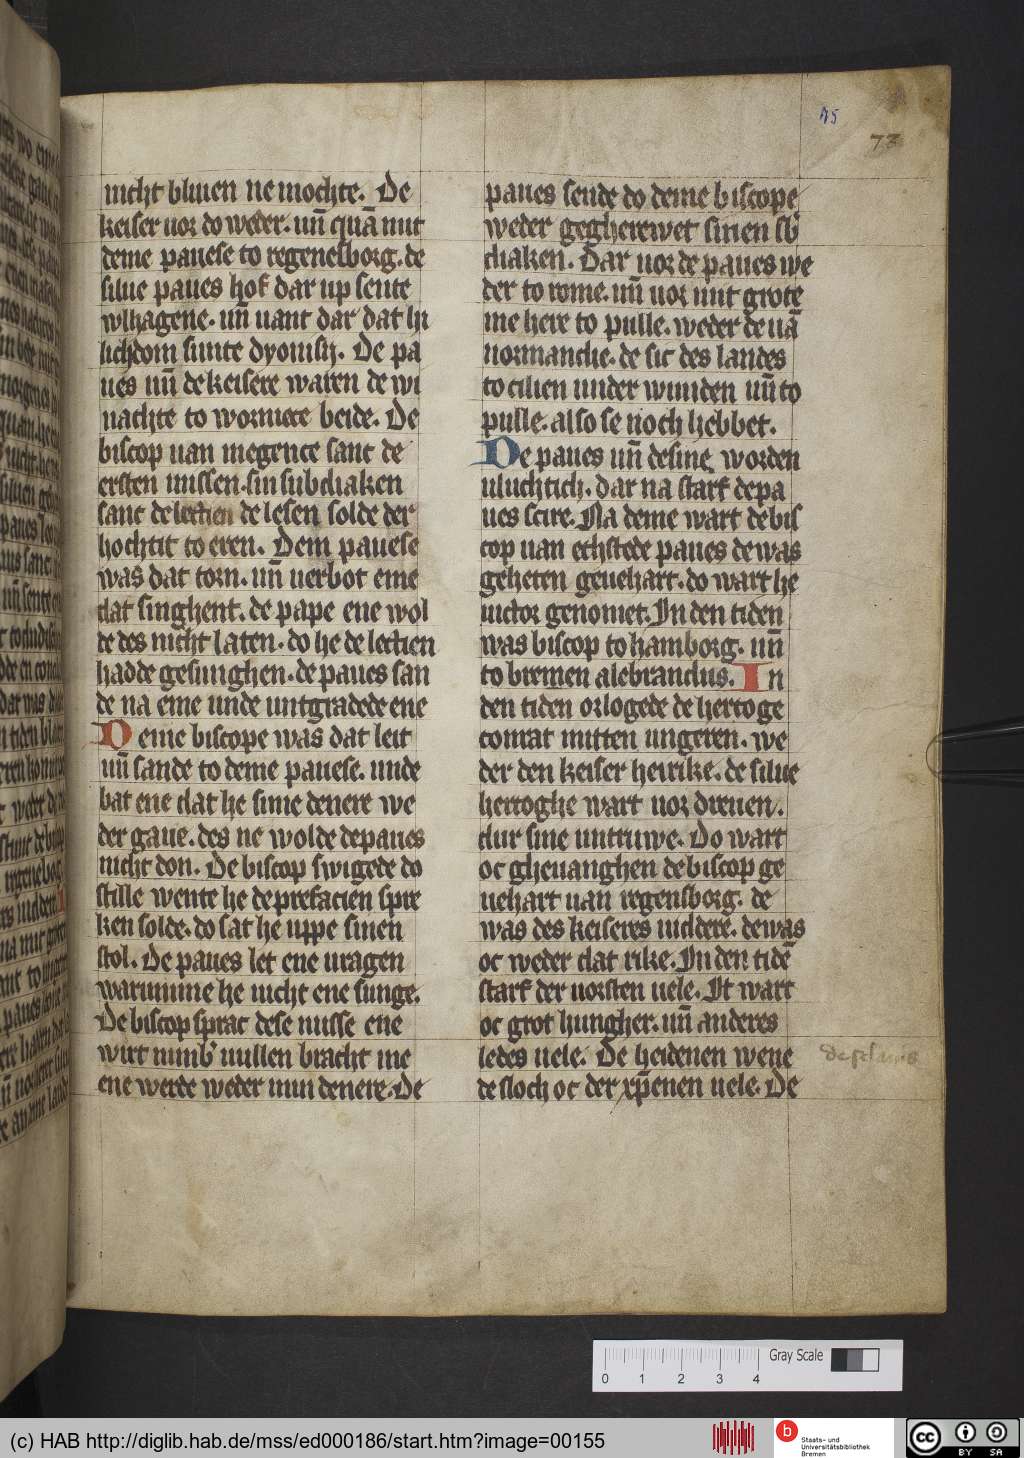 45
73
nicht bliuen ne mochte. De
keiser uor do weder. uñ quā mit
deme pauese to regenesborg. de
silue paues hof dar up sente
wlfhagene. uñ uant dar dat hi
lichdom sunte dyonisij. De pa
ues uñ de keisere waren de wi
nachte to wormece beide. De
biscop uan megence sanc de
ersten missen. sin subdiaken
sanc de lectien de lesen solde der
hochtit to eren. Dem pauese
was dat torn. uñ uerbot eme
dat singhent. de pape ene wol
de des nicht laten. do he de lectien
hadde gesunghen. de paues san
de na eme unde untgradede ene
Deme biscope was dat leit
uñ sande to deme pauese. unde
bat ene dat he sime denere we
der gaue. des ne wolde de paues
nicht don. De biscop swigede do
stille wente he de prefacien spre
ken solde. do sat he uppe sinen
stol. De paues let ene uragen
warumme he nicht ene sunge.
De biscop sprac dese misse ene
wirt nimb' uullen bracht me
ene werde weder min denere. De
paues sende do deme biscope
weder gegherewet sinen sb
diaken. Dar uor de paues we
der to rome. uñ uor mit grote
me here to pulle. weder de uā
normandie. de sic des landes
to cilien under wunden uñ to
pulle. also se noch hebbet.
De paues uñ de sine worden
uluchtich. dar na starf de pa
ues scire. Na deme wart de bis
cop uan echstede paues de was
geheten geuehart. do wart he
uictor genomet. In den tiden
was biscop to hamborg. uñ
to bremen alebrandus. In
den tiden orlogede de hertoge
conrat mitten ungeren. we
der den keiser heirike. de silue
hertoghe wart uor dreuen.
dur sine untruwe. Do wart
oc gheuanghen de biscop ge
uehart uan regensborg. de
was des keiseres uiddere. de was
oc weder dat rike. In den tidē
starf der uorsten uele. It wart
oc grot hungher. uñ anderes
ledes uele. De heidenen wene
de sloch oc der xp̄enen uele. De
de sclauis
0 1 2 3 4
Gray Scale
(c) HAB http://diglib.hab.de/mss/ed000186/start.htm?image=00155
b
Staats- und
Universitätsbibliothek
Bremen
cc
BY SA